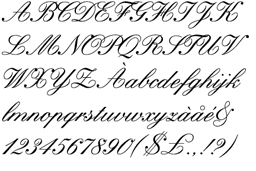 ABCDEFGHIJK
LMNOPQRSTUV
WXYZÀabcdefghijk
lmnopqrstuvwxyzàåé&
1234567890($£.,!?)